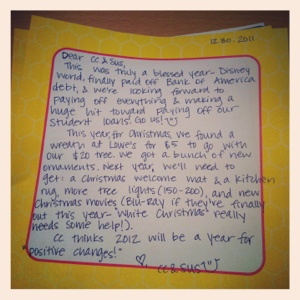 12.30.2011
Dear CC & Sus,
This was truly a blessed year - Disney
World, finally paid off Bank of America
debt, & we're looking forward to
paying off everything & making a
huge hit toward paying off our
student loans! Go us!
This year, for Christmas, we found a
wreath at Lowe's for $5 to go with
our $20 tree. We got a bunch of new
ornaments. Next year, we'll need to
get: a Christmas welcome mat & a kitchen
rug, more tree lights (150-200), and new
Christmas movies (Blu-Ray if they're finally
out this year - "White Christmas" really
needs some help!).
CC thinks 2012 will be a year for
"positive changes!"
CC & Sus